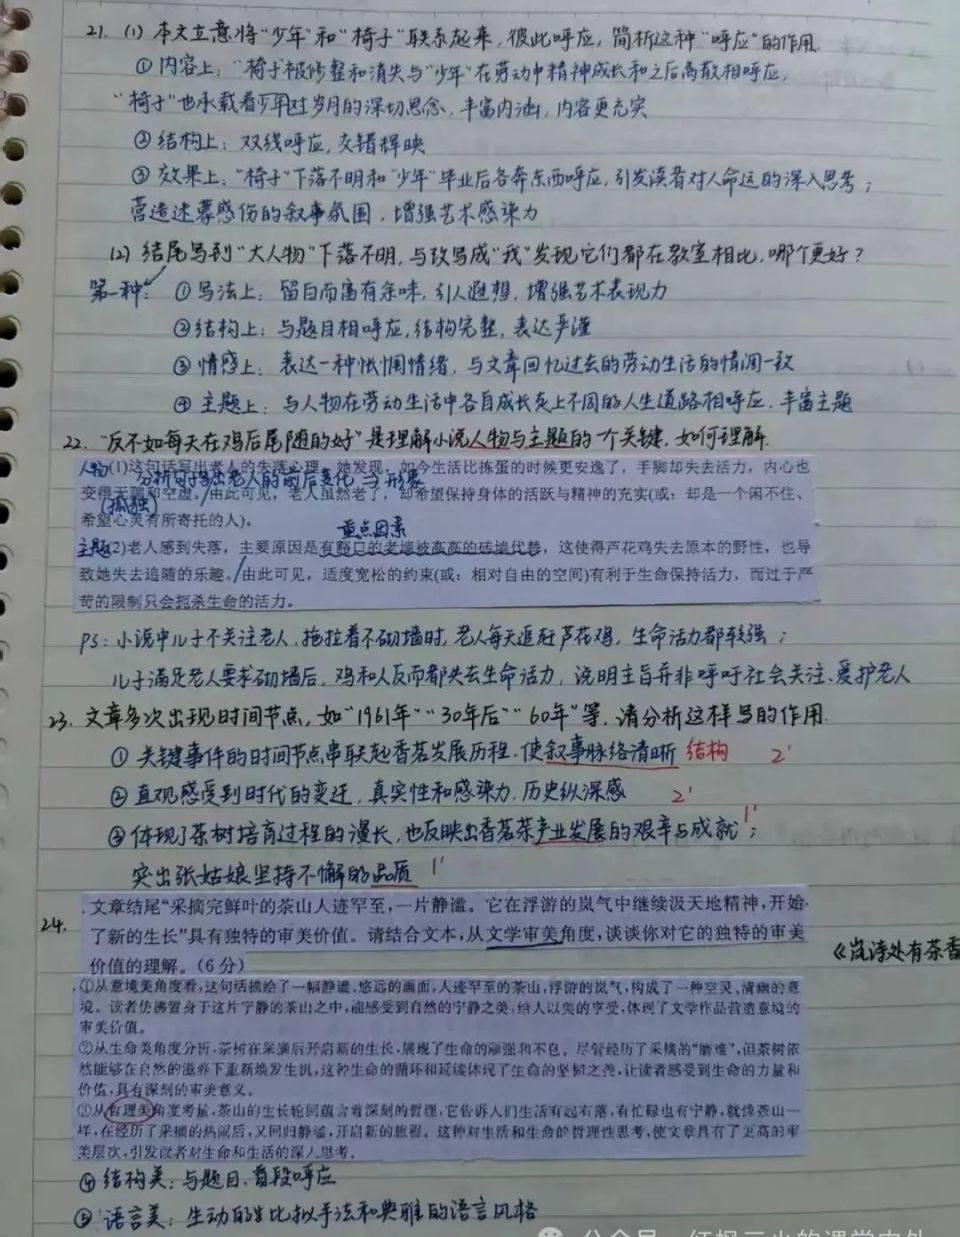 21. (1) 本文立意将“少年”和“椅子”联系起来，彼此呼应，简析这种“呼应”的作用.
①内容上：“椅子”被修整和消失与“少年”在劳动中精神成长和之后离散相呼应，
“椅子”也承载着少年对岁月的深切思念，丰富内涵，内容更充实
②结构上：双线呼应，交错辉映
③效果上：“椅子”下落不明和“少年”毕业后各奔东西呼应，引发读者对人命运的深入思考；
营造迷雾感伤的叙事氛围，增强艺术感染力
(2) 结尾写到“大人物”下落不明，与改写成“我”发现它们都在教室相比，哪个更好？
第一种：①写法上：留白而富有余味，引人遐想，增强艺术表现力
②结构上：与题目相呼应，结构完整，表达严谨
③情感上：表达一种怅惘情绪，与文章回忆过去的劳动生活的情调一致
④主题上：与人物在劳动生活中各自成长走上不同的人生道路相呼应，丰富主题
22. “反不如每天在鸡后尾随的好”是理解小说人物与主题的一个关键，如何理解.
人物(1)这句话写出老人的失落心理。她发现，如今生活比拣蛋的时候更安逸了，手脚却失去活力，内心也
分析句子写出老人的前后变化与形象
变得无聊和空虚。/由此可见，老人虽然老了，却希望保持身体的活跃与精神的充实(或：却是一个闲不住、
(孤独)
希望心灵有所寄托的人)。
重点因素
主题(2)老人感到失落，主要原因是有豁口的老墙被高高的砖墙代替，这使得芦花鸡失去原本的野性，也导
致她失去追随的乐趣。/由此可见，适度宽松的约束(或：相对自由的空间)有利于生命保持活力，而过于严
苛的限制只会扼杀生命的活力。
PS：小说中儿子不关注老人、拖拉着不砌墙时，老人每天追赶芦花鸡，生命活力都较强；
儿子满足老人要求砌墙后，鸡和人反而都失去生命活力，说明主旨并非呼吁社会关注、爱护老人
23. 文章多次出现时间节点，如“1961年”“30年后”“60年”等，请分析这样写的作用.
①关键事件的时间节点串联起香茗发展历程，使叙事脉络清晰 结构 2'
②直观感受到时代的变迁，真实性和感染力，历史纵深感 2'
③体现了茶树培育过程的漫长，也反映出香茗茶产业发展的艰辛与成就 1'；
突出张姑娘坚持不懈的品质 1'
24. 文章结尾“采摘完鲜叶的茶山人迹罕至，一片静谧。它在浮游的岚气中继续汲天地精神，开始
了新的生长”具有独特的审美价值。请结合文本，从文学审美角度，谈谈你对它的独特的审美
价值的理解。(6分)
《岚诗处有茶香
①从意境美角度看，这句话描绘了一幅静谧、悠远的画面，人迹罕至的茶山，浮游的岚气，构成了一种空灵、清幽的意
境。读者仿佛置身于这片宁静的茶山之中，能感受到自然的宁静之美，给人以美的享受，体现了文学作品营造意境的
审美价值。
②从生命美角度分析，茶树在采摘后开启新的生长，展现了生命的顽强和不息。尽管经历了采摘的“磨难”，但茶树依
然能够在自然的滋养下重新焕发生机，这种生命的循环和延续体现了生命的坚韧之美，让读者感受到生命的力量和
价值，具有深刻的审美意义。
③从哲理美角度考量，茶山的生长轮回蕴含着深刻的哲理，它告诉人们生活有起有落，有忙碌也有宁静，就像茶山一
样，在经历了采摘的热闹后，又回归静谧，开启新的旅程。这种对生活和生命的哲理性思考，使文章具有了更高的审
美层次，引发读者对生命和生活的深入思考。
④结构美：与题目、首段呼应
⑤语言美：生动的比拟手法和典雅的语言风格